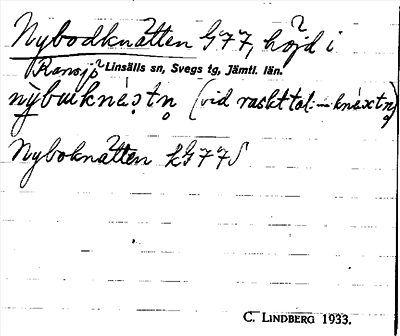 Nybodknätten G77, höjd i
Ransjö Linsälls sn, Svegs tg, Jämtl. län.
(vid raskt tal: –
Nyboknätten k G77 S
C. LINDBERG 1933.